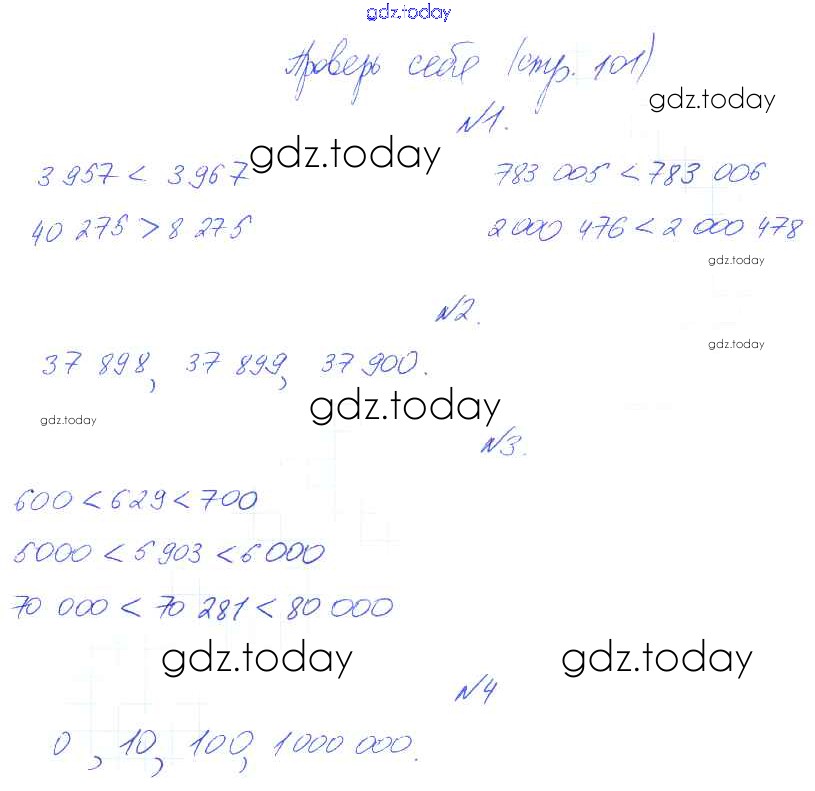 gdz.today
Проверь себя (стр. 101)
gdz.today
№1.
3 957 < 3 967 gdz.today 783 005 < 783 006
40 275 > 8 275 2 000 476 < 2 000 478
gdz.today
№2.
gdz.today
37 898, 37 899, 37 900.
gdz.today gdz.today
№3.
600 < 629 < 700
5000 < 5 903 < 6 000
70 000 < 70 281 < 80 000
gdz.today gdz.today
№4
0, 10, 100, 1 000 000.